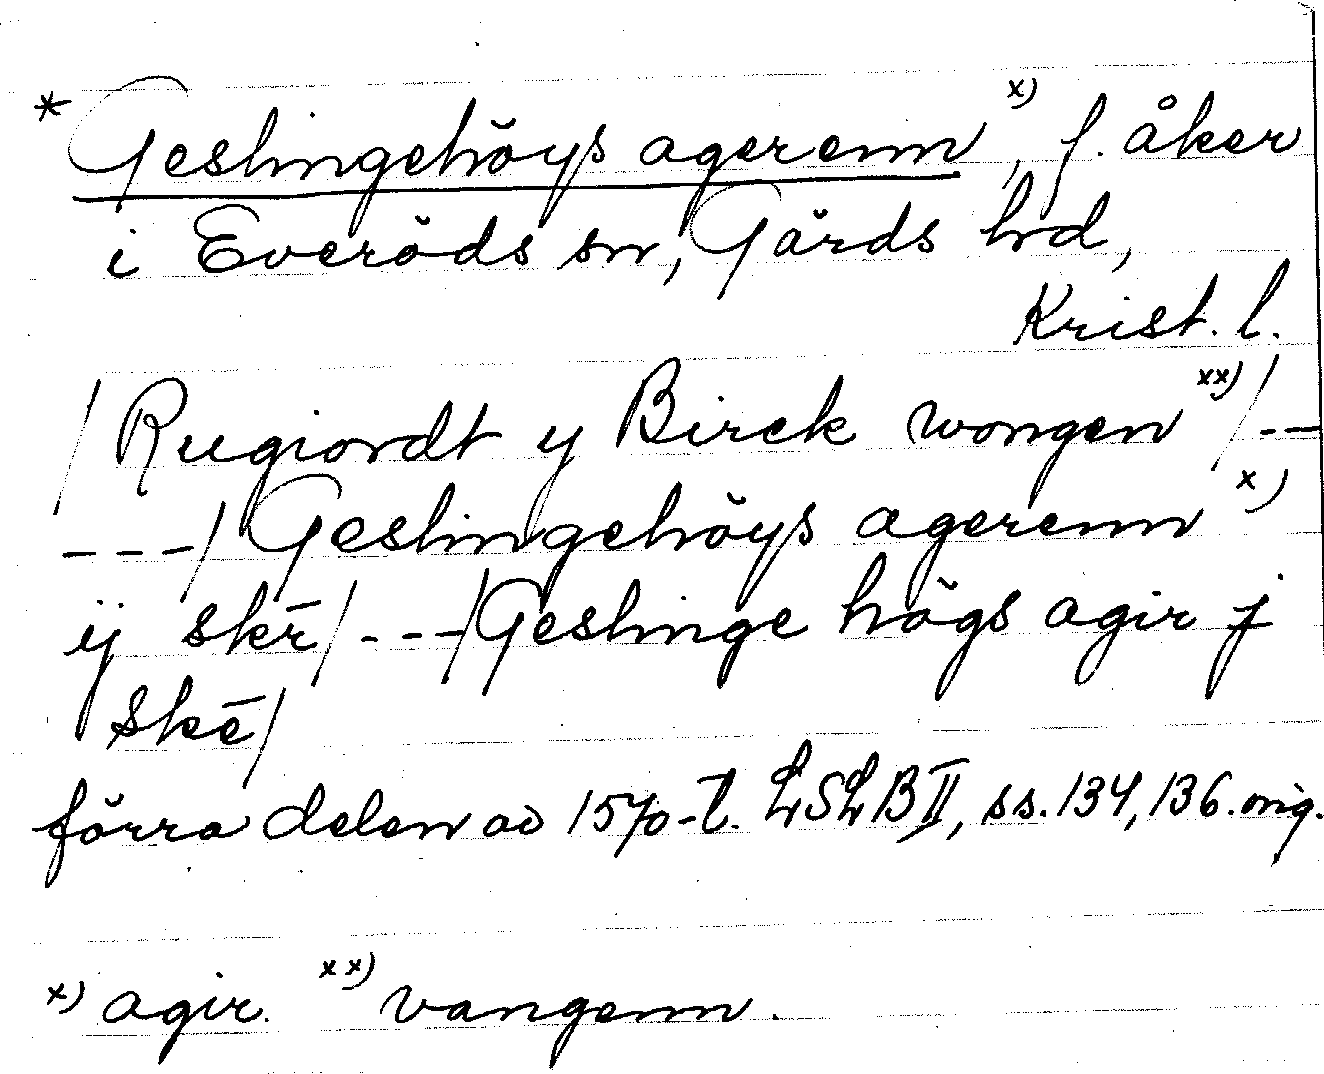 * Geslingehöys agerenn x), f. åker
i Everöds sn, Gärds hd,
Krist. l.
/Rugiordt y Birck wongen xx)/--
---/Geslingehöys agerenn x)
ÿ skr̄/---/Geslinge högs agir j
skē/
förra delen av 1570-t. LSLB II, ss. 134, 136. orig.
x) agir. xx) vangenn.